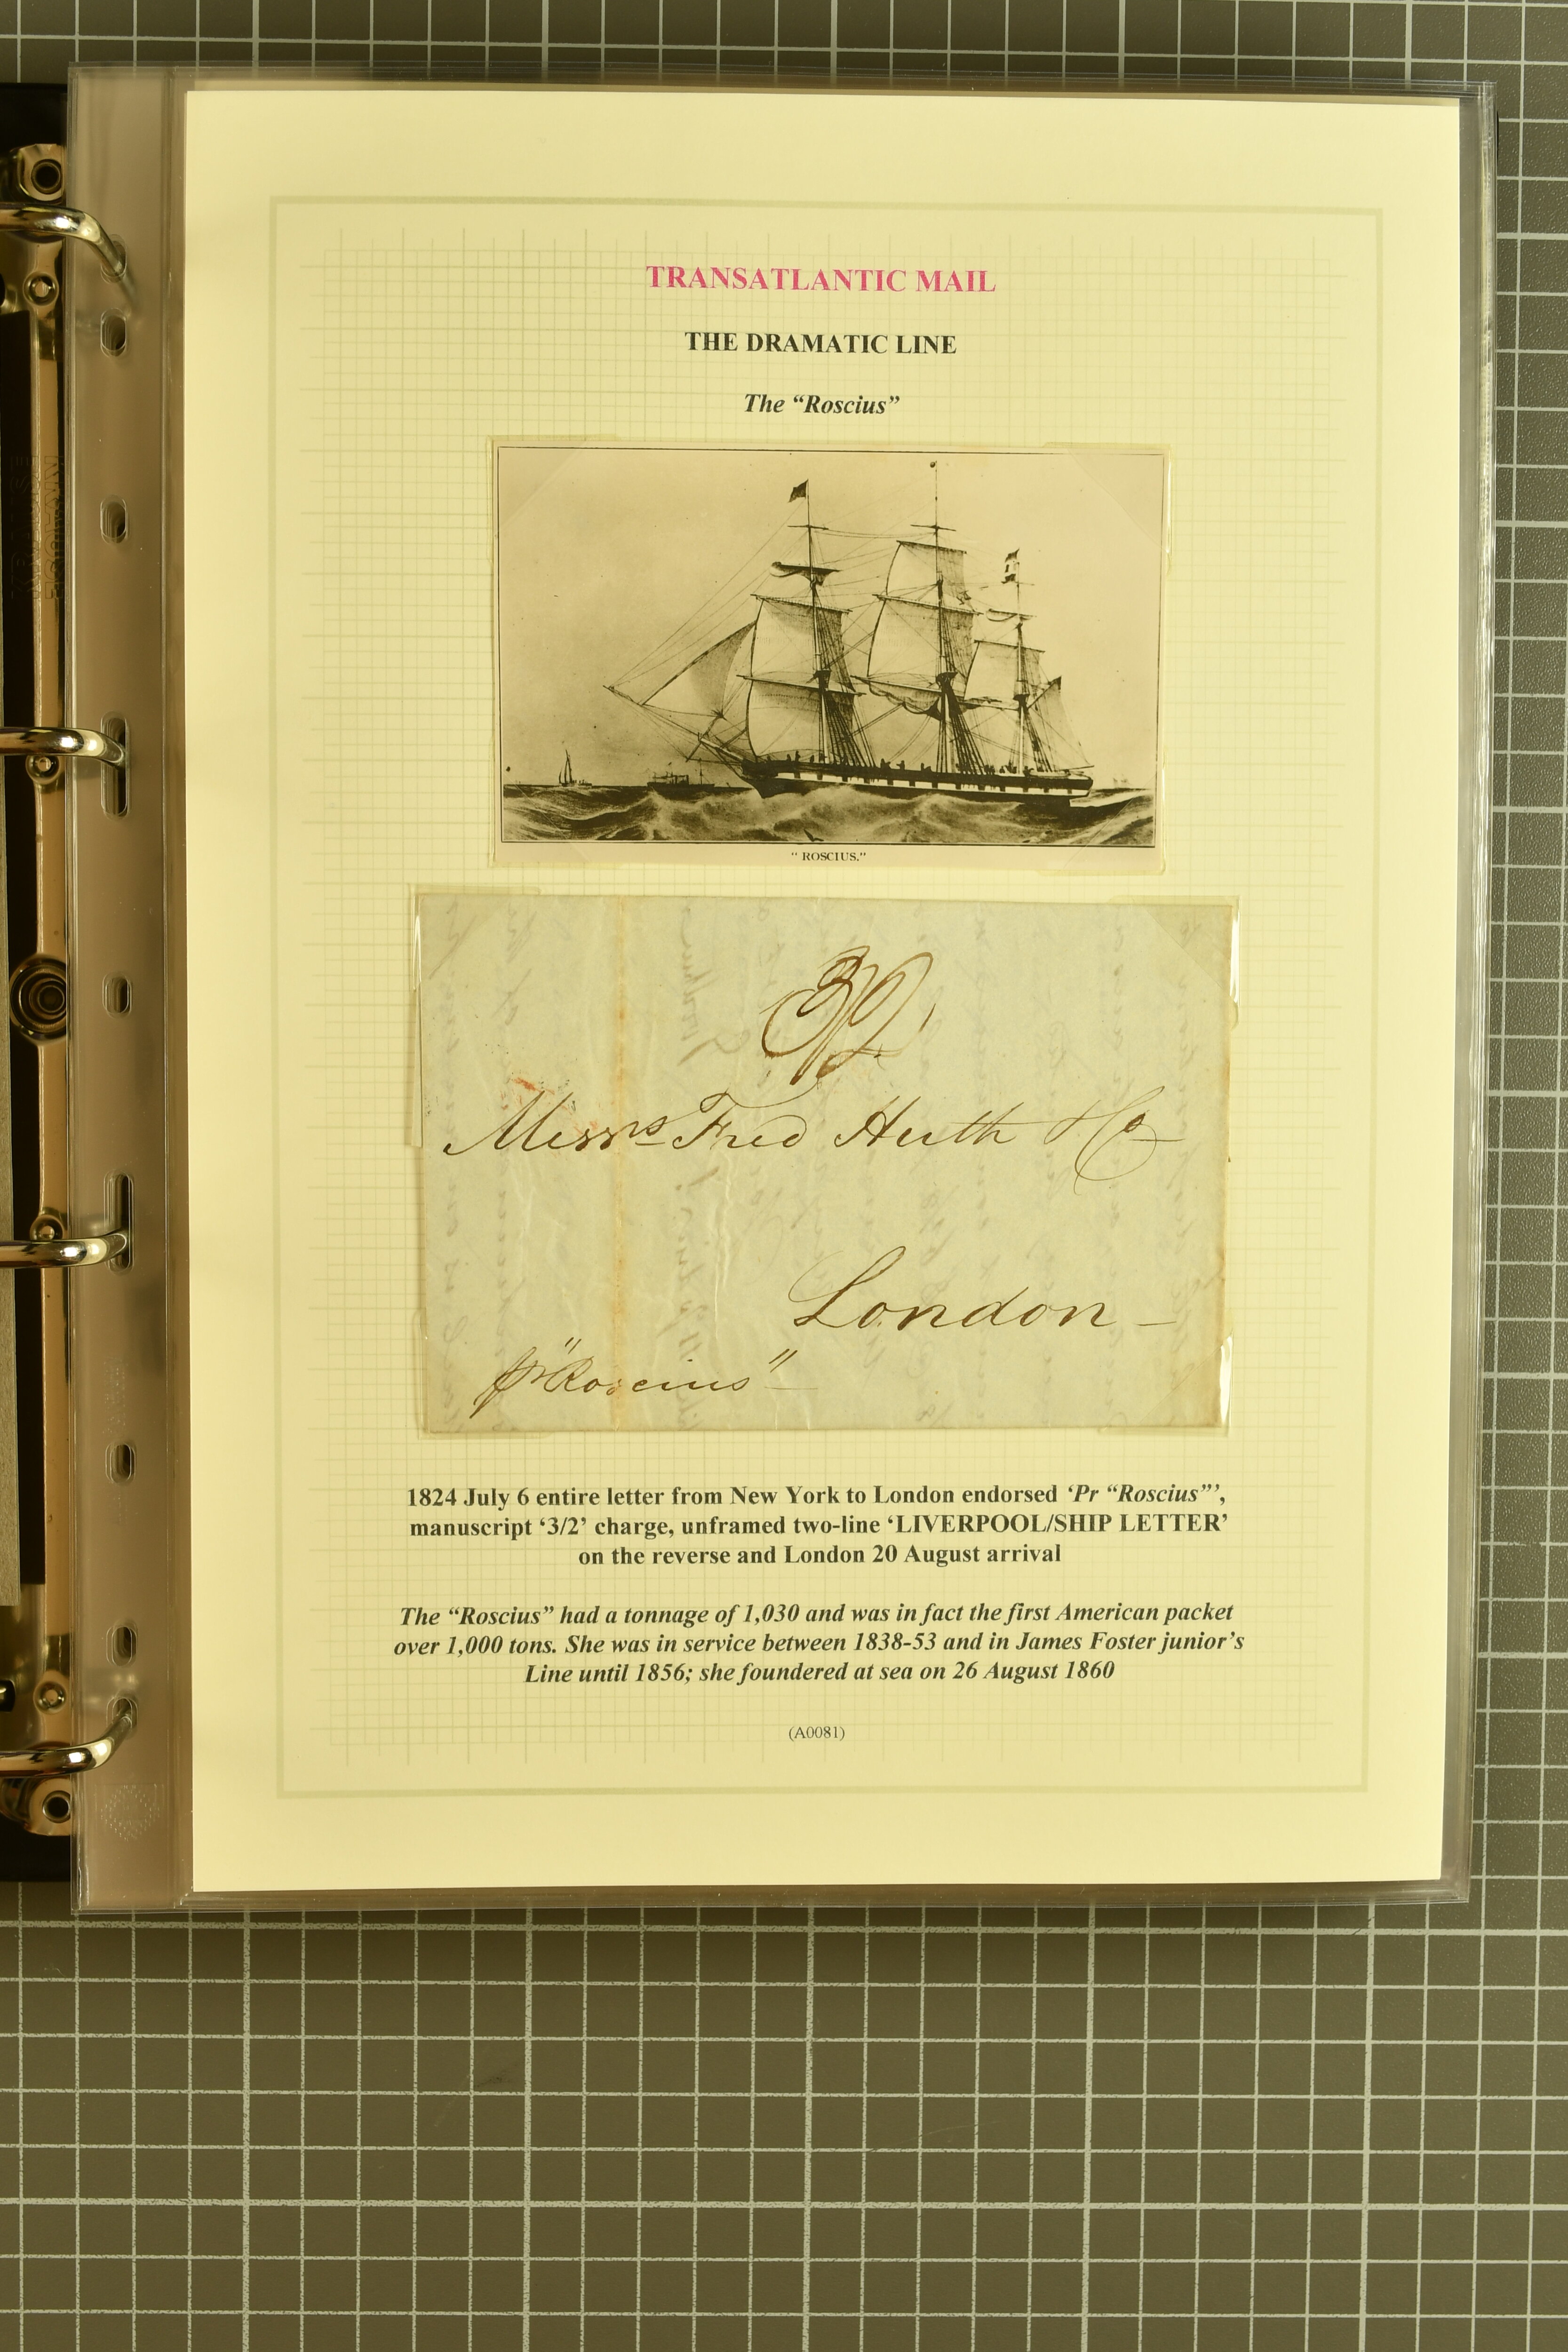 TRANSATLANTIC MAIL
THE DRAMATIC LINE
The “Roscius”
" ROSCIUS."
3/2
Messrs Fred Huth & Co
London -
pr "Roscius"
1824 July 6 entire letter from New York to London endorsed ‘Pr “Roscius”’,
manuscript ‘3/2’ charge, unframed two-line ‘LIVERPOOL/SHIP LETTER’
on the reverse and London 20 August arrival
The “Roscius” had a tonnage of 1,030 and was in fact the first American packet
over 1,000 tons. She was in service between 1838-53 and in James Foster junior’s
Line until 1856; she foundered at sea on 26 August 1860
(A0081)